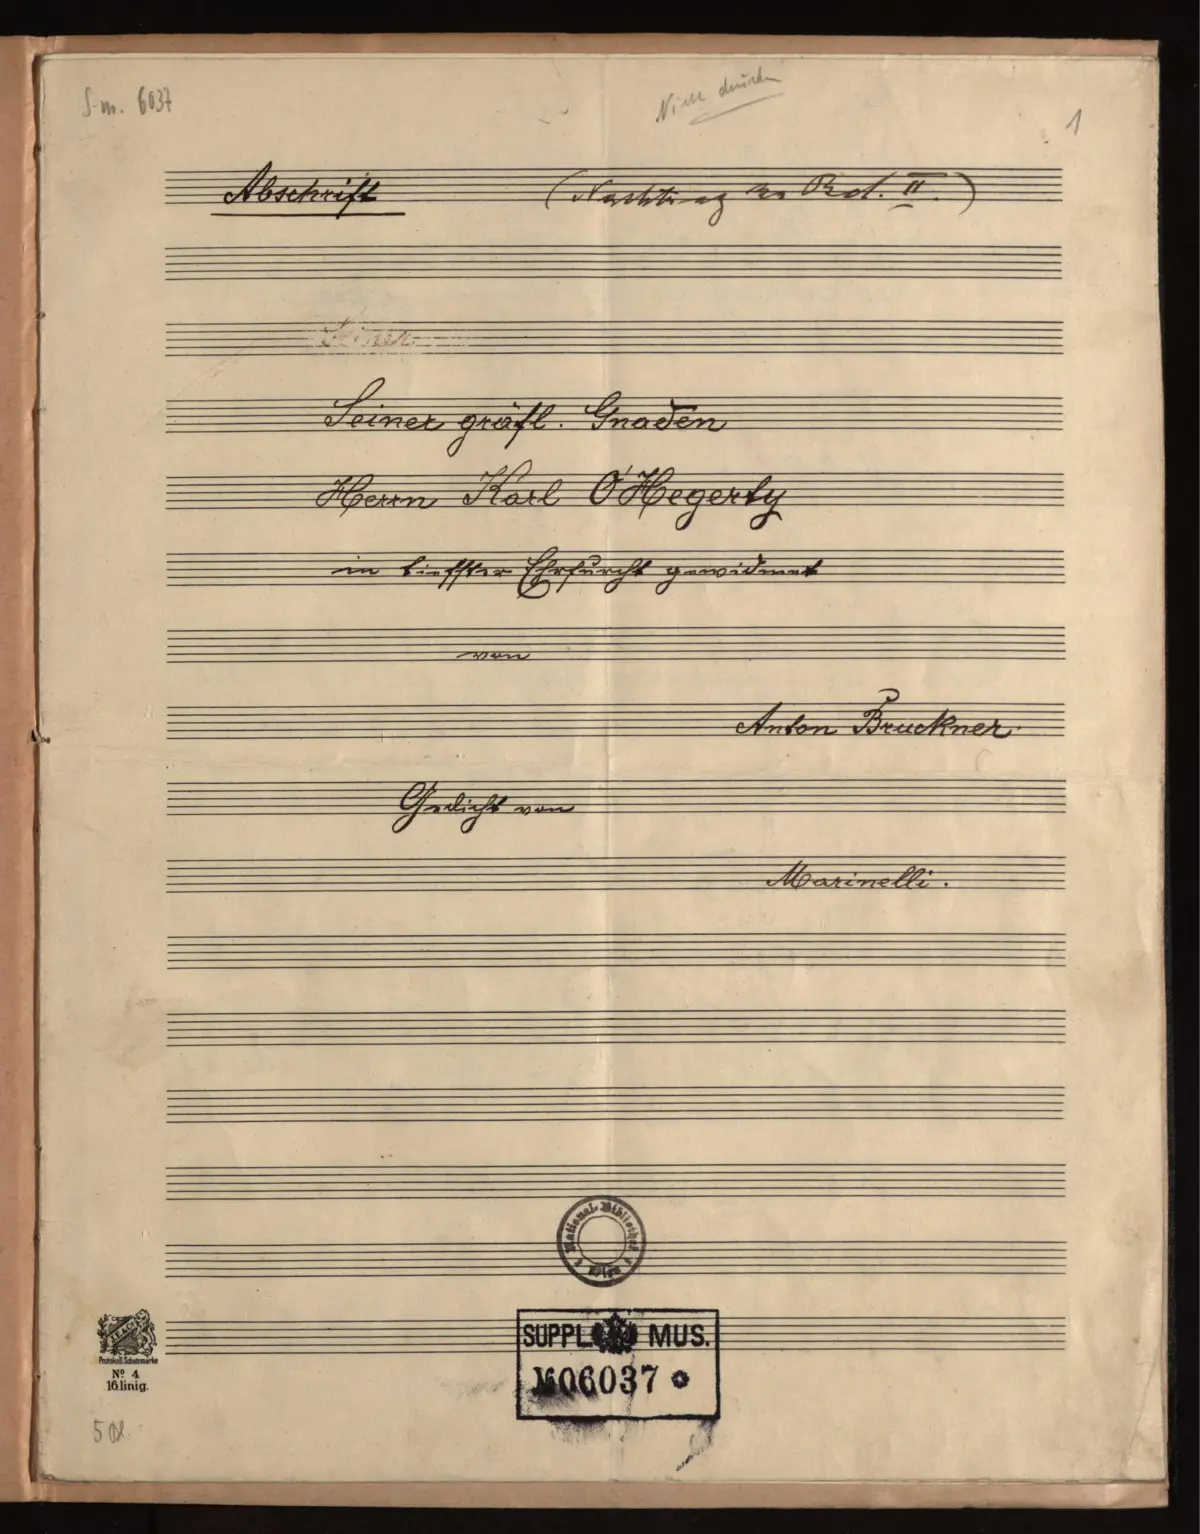 S. m. 6037
Nicht drucken
1
Abschrift (Nachtrag zu Bd. II.)
Seiner
Seiner gräfl. Gnaden
Herrn Karl O'Hegerty
in tiefster Ehrfurcht gewidmet
von
Anton Bruckner.
Gedicht von
Marinelli.
National-Bibliothek Wien
SUPPL. MUS.
№ 06037
J.E.&Co.
Protokoll. Schutzmarke
Nº 4
16linig.
5 Bl.